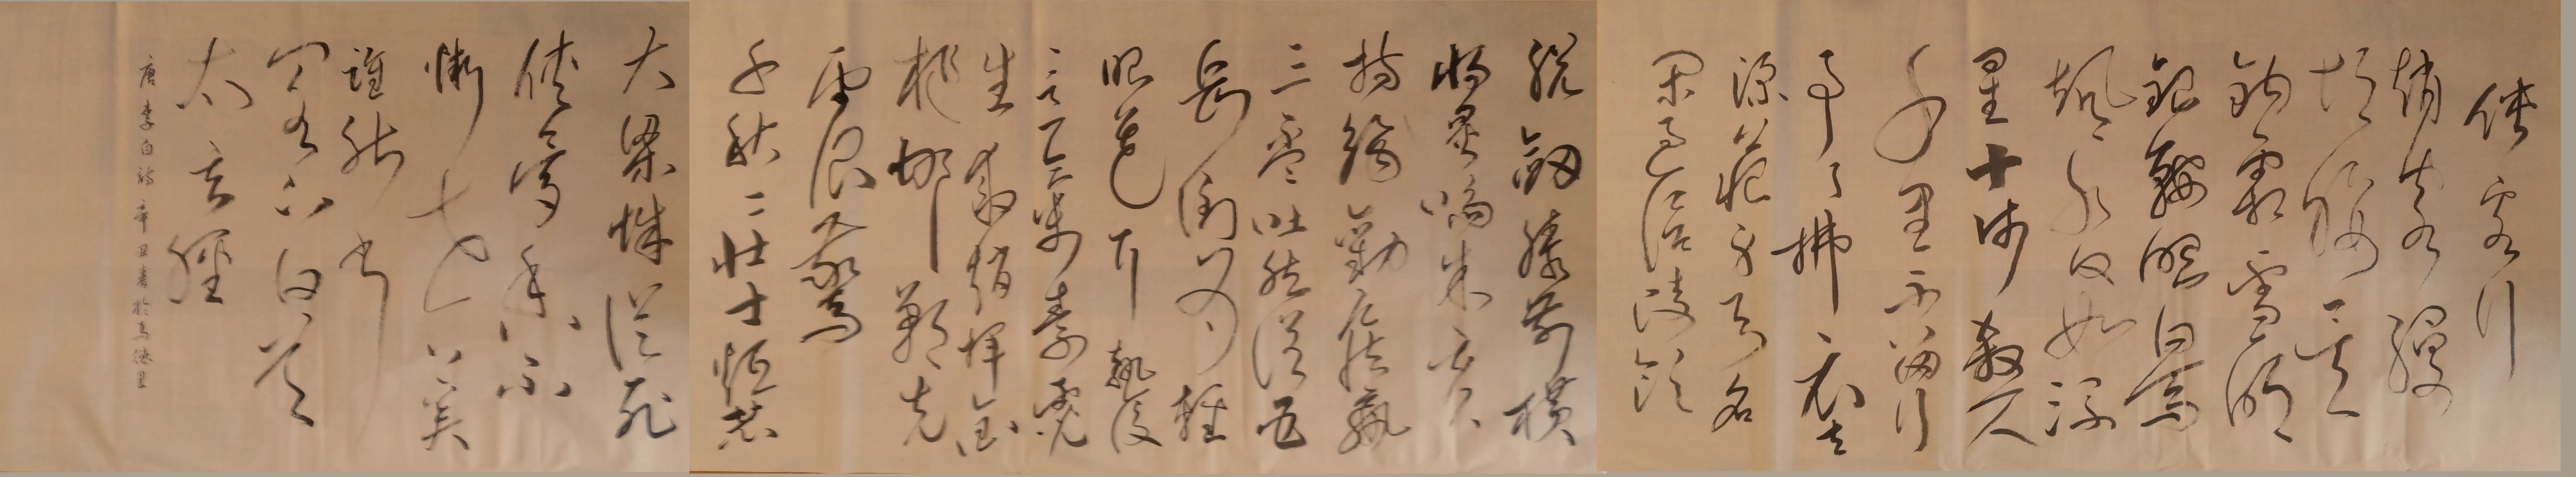 俠客行
趙客縵
胡纓吳
鉤霜雪明
銀鞍照白馬
颯沓如流
星十步殺人
千里不留行
事了拂衣去
深藏身與名
閑過信陵飲
脱劍膝前橫
將炙啖朱亥
持觴勸侯嬴
三盃吐然諾五
岳倒為輕
眼花耳熱後
意氣素霓
生救趙揮金
槌邯鄲先
震驚
千秋二壯士烜赫
大梁城縱死
俠骨香不
慚世上英
誰能書
閣下白首
太玄經
唐李白詩辛丑書於馬德里